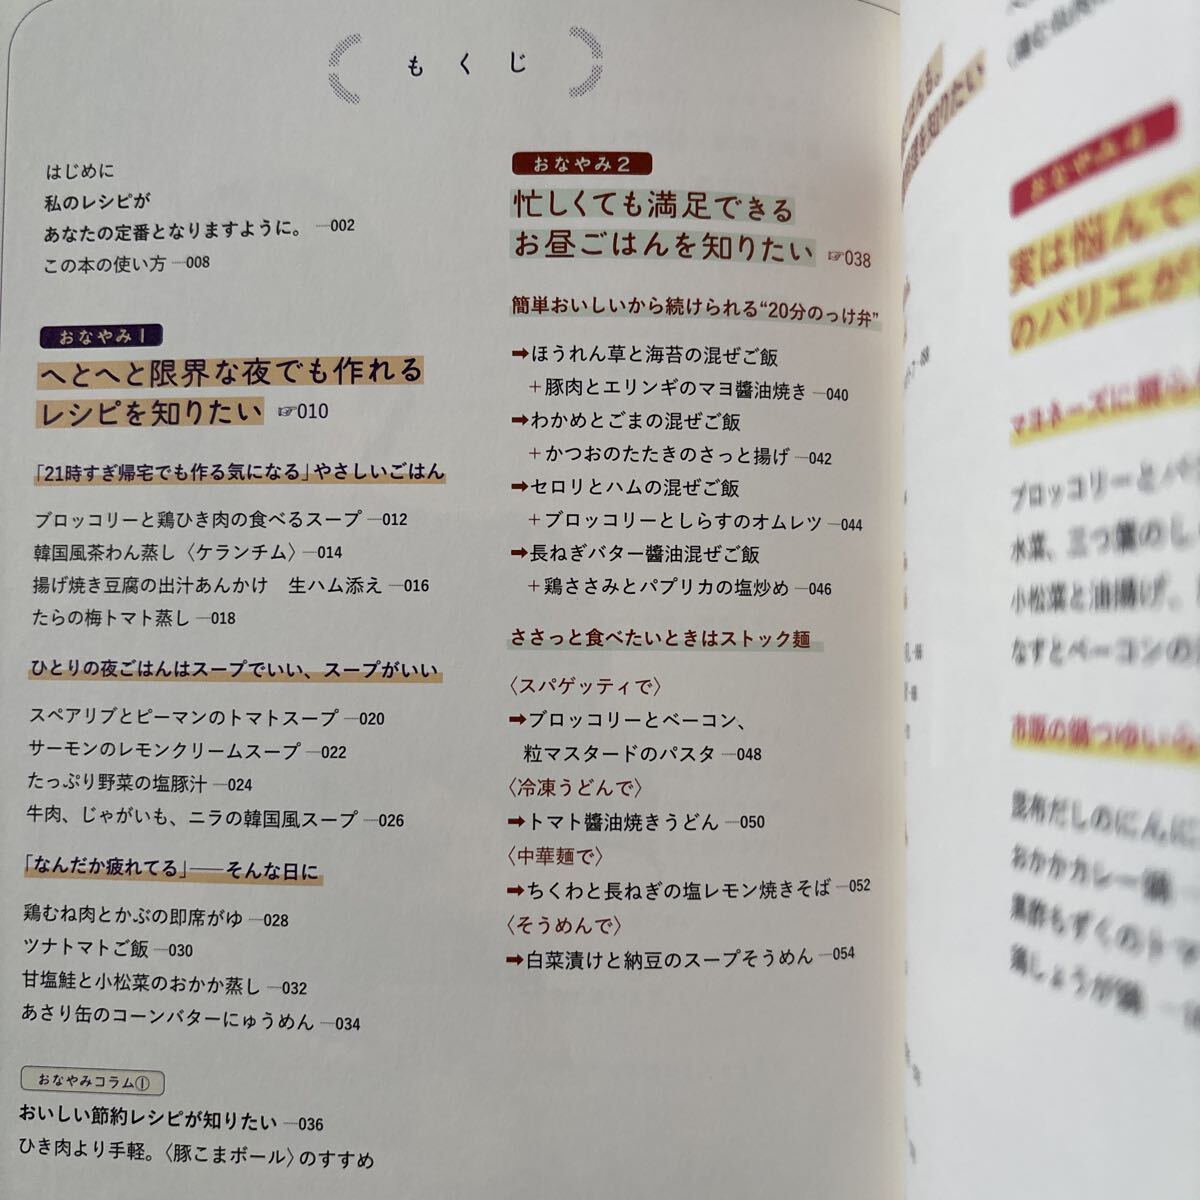 もくじ
はじめに
私のレシピが
あなたの定番となりますように。—002
この本の使い方—008
おなやみ1
へとへと限界な夜でも作れる
レシピを知りたい ☞010
「21時すぎ帰宅でも作る気になる」やさしいごはん
ブロッコリーと鶏ひき肉の食べるスープ—012
韓国風茶わん蒸し〈ケランチム〉—014
揚げ焼き豆腐の出汁あんかけ　生ハム添え—016
たらの梅トマト蒸し—018
ひとりの夜ごはんはスープでいい、スープがいい
スペアリブとピーマンのトマトスープ—020
サーモンのレモンクリームスープ—022
たっぷり野菜の塩豚汁—024
牛肉、じゃがいも、ニラの韓国風スープ—026
「なんだか疲れてる」——そんな日に
鶏むね肉とかぶの即席がゆ—028
ツナトマトご飯—030
甘塩鮭と小松菜のおかか蒸し—032
あさり缶のコーンバターにゅうめん—034
おなやみコラム①
おいしい節約レシピが知りたい—036
ひき肉より手軽。〈豚こまボール〉のすすめ
おなやみ2
忙しくても満足できる
お昼ごはんを知りたい ☞038
簡単おいしいから続けられる“20分のっけ弁”
➡ほうれん草と海苔の混ぜご飯
+豚肉とエリンギのマヨ醬油焼き—040
➡わかめとごまの混ぜご飯
+かつおのたたきのさっと揚げ—042
➡セロリとハムの混ぜご飯
+ブロッコリーとしらすのオムレツ—044
➡長ねぎバター醬油混ぜご飯
+鶏ささみとパプリカの塩炒め—046
ささっと食べたいときはストック麺
〈スパゲッティで〉
➡ブロッコリーとベーコン、
粒マスタードのパスタ—048
〈冷凍うどんで〉
➡トマト醬油焼きうどん—050
〈中華麺で〉
➡ちくわと長ねぎの塩レモン焼きそば—052
〈そうめんで〉
➡白菜漬けと納豆のスープそうめん—054
を知りたい
おなやみ4
実は悩んで
のバリエが
マヨネーズに頼ら
ブロッコリーとバ
水菜、三つ葉のし
小松菜と油揚げ、
なすとベーコンの
市販の鍋つゆいら
昆布だしのにんに
おかかカレー鍋
黒酢もずくのトマ
鶏しょうが鍋